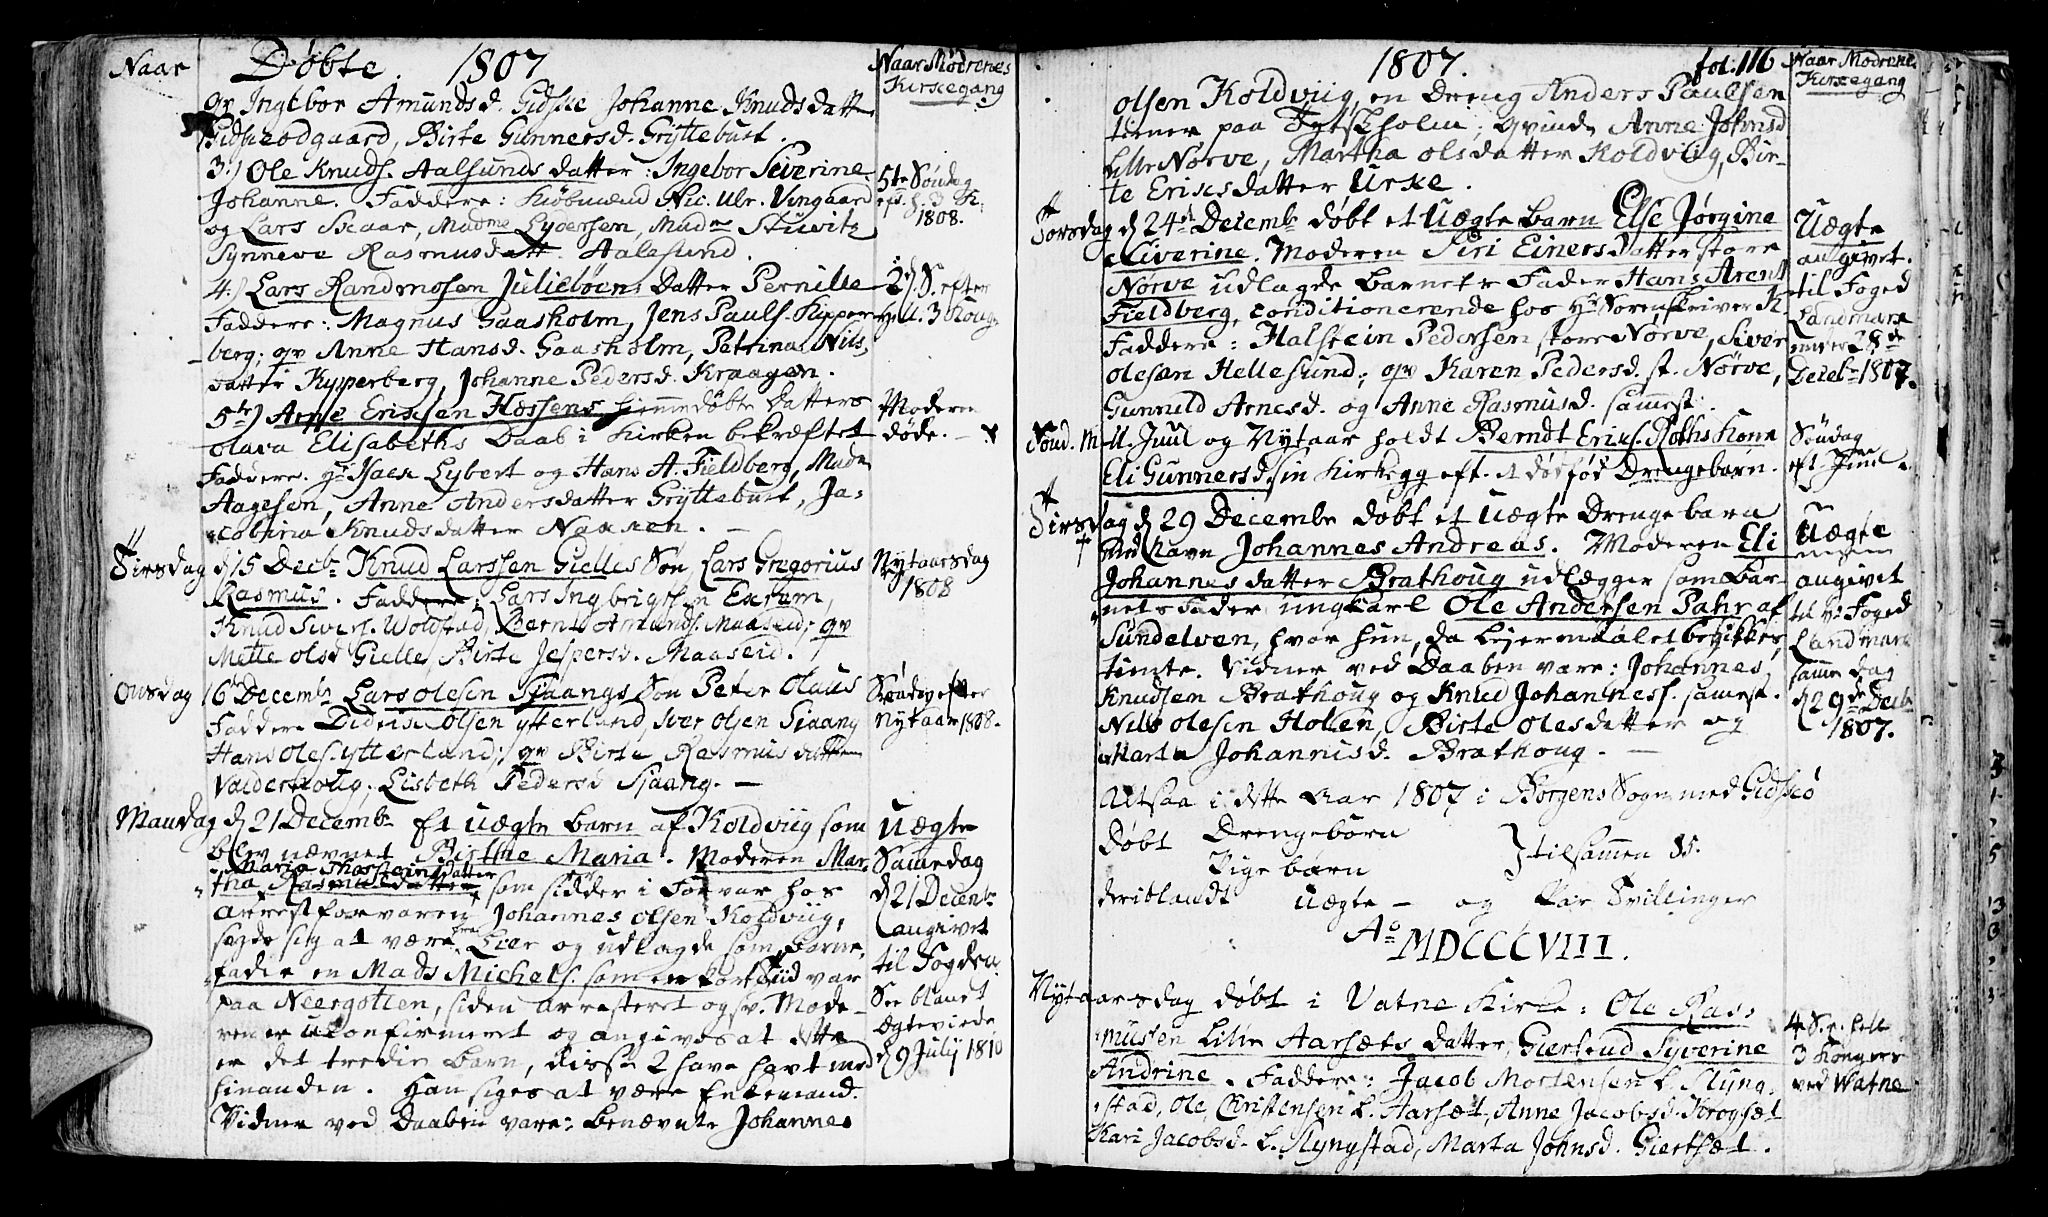 Naar Døbte. 1807 Naar Mødrenes Kirkegang
qv Ingebor Amundsd. Gidske Johanne Knudsdatter
Gidskeødgaard, Birte Gunnersd. Gryttebust.
3.) Ole Knuds. Aalsunds datter: Ingebor Siverine
Johanne. Faddere: Kiøbmænd Nic. Ulr. Vingaard
og Lars Skaar, Madme Lydersen, Madm Stuwitz
Synneve Rasmusdatt. Aalesund.
5te Søndag
eft. h. 3 K.
1808.
4.) Lars Randmosen Juliebøens Datter Pernille
Faddere: Magnus Gaasholm, Jens Pauls. Kypper-
berg; qv Anne Hansd. Gaasholm, Petrina Nils-
datter Kypperberg, Johanne Pedersd. Kraagen.
2d. S. efter
Hell. 3 Kong
5te) Arne Eriksen Hessens hjemmedøbte Datters
Olava Elisabeths Daab i Kirken bekræftet
Faddere. Hr Isaek Lybert og Hans A. Fieldberg, Madm
Aagesen, Anne Andersdatter Gryttebust, Ja-
cobina Knudsdatter Naaren. —
Moderen
døde. —
Tirsdag d. 15 Decbr Knud Larssen Gielles Søn Lars Gregorius
Rasmus. Faddere: Lars Ingbrigtsen Exrem,
Knud Sivers. Woldstad, Bernt Amunds. Maaseid; qv
Mette Olsd Gielle, Birte Jespersd. Maaseid.
Nytaarsdag
1808
Onsdag 16 Decembr Lars Olesen Sjaangs Søn Peter Olaus
Faddere Didrik Olsen Ytterland Siver Olsen Sjaang
Hans Oles. Ytterland; qv Birte Rasmusdatter
Valderhoug, Lisbeth Pedersd Sjaang. —
Søndag efter
Nytaar 1808.
Mandag d. 21 Decembr Et uægte barn af Koldviig som
blev nævnet Birthe Maria. Moderen Mar-
Maria Thorsteinsdatter
tha Rasmusdatter som sidder i Forvar hos
arrestforvaren Johannes Olsen Koldviig,
sagde sig at være fra Lier og udlagde som barne-
fader en Mads Michels. som en kort Tiid var
paa Neergotten, siden arresteret ogsv. Mode-
ren er ukonfirmeret og angives at dette
er det tredie barn, disse 2 have havt med
hinanden. Han siges at være Enkemand.
Vidner ved Daaben vare: benævnte Johannes
Uægte
Samedag
d. 21 Decembr
angivet
til Fogden.
See blandt
Ægteviede
d. 9 July 1810
1807. fol. 116 Naar Mødrenes Kirkegang
Olsen Koldviig, en Dreng Anders Paulsen
tiener paa Tytskholm; qvinder Anne Johnsd
lille Nørve, Martha Olsdatter Koldviig, Bir-
te Eriksdatter Urke.
Torsdag d. 24de Decembr døbt et Uægte barn Else Jørgine
Siverine. Moderen Siri Einersdatter store
Nørve udlagde Barnets Fader Hans Arent
Fieldberg, conditionerende hos Hr Sorenskriver K.
Faddere: Halstein Pedersen store Nørve, Siver
Olesøn Hellesund; qv Karen Pedersd. st. Nørve,
Gunnild Arnesd. og Anne Rasmusd. sammest.
Uægte
angivet
til Foged
Landmark
28de
Decbr 1807.
Sønd. M ll. Juul og Nytaar holdt Berndt Eriks. Roths Kone
Eli Gunnersd. sin Kirkegg eft. 1 dødfød Drengebarn.
Søndag
eft. Juul
Tirsdag d. 29 Decembr døbt et Uægte Drengebarn
med Navn Johannes Andreas. Moderen Eli
Johannesdatter Brathoug udlægger som Bar-
nets Fader ungkarl Ole Andersen Pahr af
Sundelven, hvor hun, da lejermaalet begikkes,
tiente. Vidner ved Daaben vare: Johannes
Knudsen Brathoug og Knud Johanness. samest.
Nils Olesen Holen, Birte Olesdatter og
Marta Johannisd. Brathoug. —
Uægte
angivet
til Hr Foged
Landmark
samme Dag
d. 29de Decbr
1807.
Altsaa i dette Aar 1807 i Borgens Sogn med Gidskø
Døbt Drengebørn
Pigebørn } tilsammen 85.
deriblandt uægte — og Par Tvillinger
Ao MDCCCVIII.
Nytaarsdag døbt i Vatne Kirke: Ole Ras-
mussen Lille Aarsæts datter, Gierteud Syverine
Andrine. Faddere: Jacob Mortensen L. Slyng-
stad, Ole Christensen L. Aarsæt, Anne Jacobsd. Krogsæt
Kari Jacobsd. L. Slyngstad, Marta Johnsd. Giertsæt.
4 S. e. hell
3 Konger
ved Watne